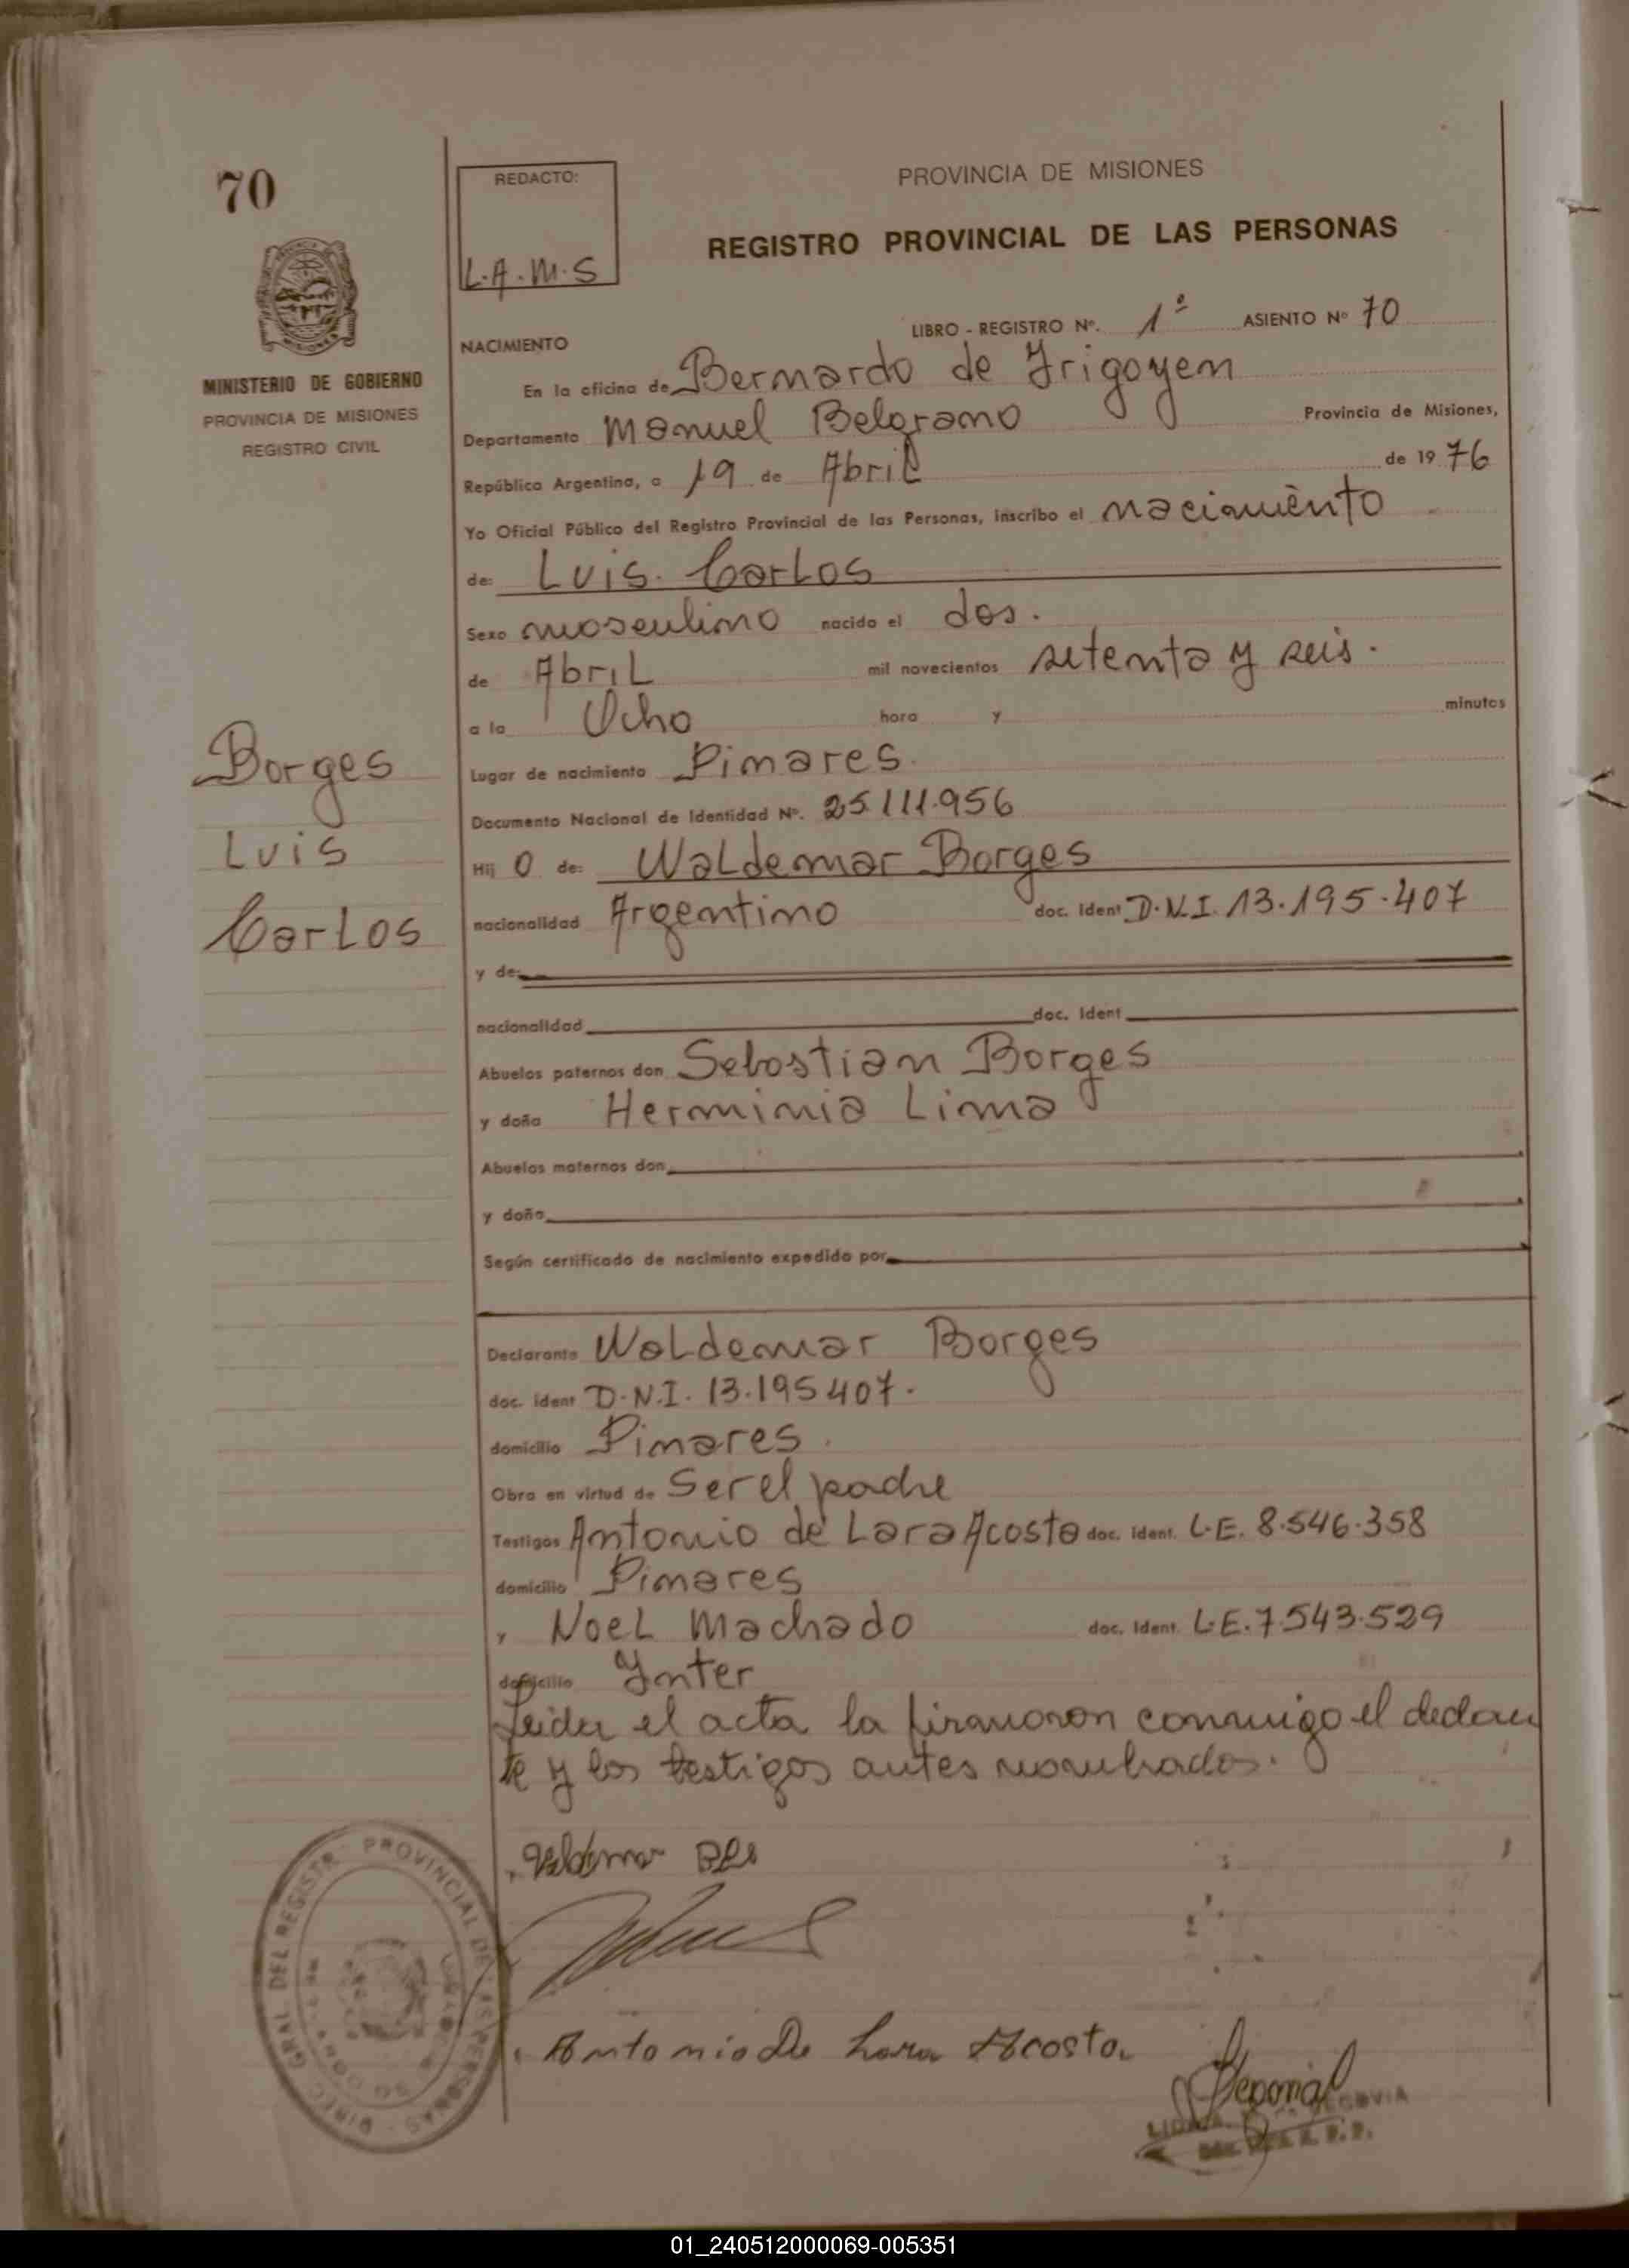 70
REDACTO:
L.A.M.S
PROVINCIA DE MISIONES
REGISTRO PROVINCIAL DE LAS PERSONAS
MINISTERIO DE GOBIERNO
PROVINCIA DE MISIONES
REGISTRO CIVIL
LIBRO - REGISTRO Nº. 1º ASIENTO Nº 70
NACIMIENTO
En la oficina de Bernardo de Yrigoyen
Departamento Manuel Belgrano Provincia de Misiones,
República Argentina, a 19 de Abril de 19 76
Yo Oficial Público del Registro Provincial de las Personas, inscribo el nacimiento
de: Luis Carlos
Sexo masculino nacido el dos.
de Abril mil novecientos setenta y seis.
a la Ocho hora y minutos
Lugar de nacimiento Pinares.
Documento Nacional de Identidad Nº. 25.111.956
Hij o de: Waldemar Borges
nacionalidad Argentino doc. Ident D.N.I. 13.195.407
y de:
nacionalidad doc. Ident
Abuelos paternos don Sebastian Borges
y doña Herminia Lima
Abuelos maternos don
y doña
Según certificado de nacimiento expedido por
Borges
Luis
Carlos
Declarante Waldemar Borges
doc. ident D.N.I. 13.195407.
domicilio Pinares.
Obra en virtud de Ser el padre
Testigos Antonio de Lara Acosta doc. Ident. L.E. 8.546.358
domicilio Pinares
y Noel Machado doc. Ident. L.E. 7.543.529
domicilio Ynter
Leida el acta la firmaron conmigo el declaran
te y los testigos antes nombrados.
Valdemar
Antonio De Lara Acosta
DIREC. GRAL DEL REGISTR. PROVINCIAL DE LAS PERSONAS
SEGOVIA
01_240512000069-005351